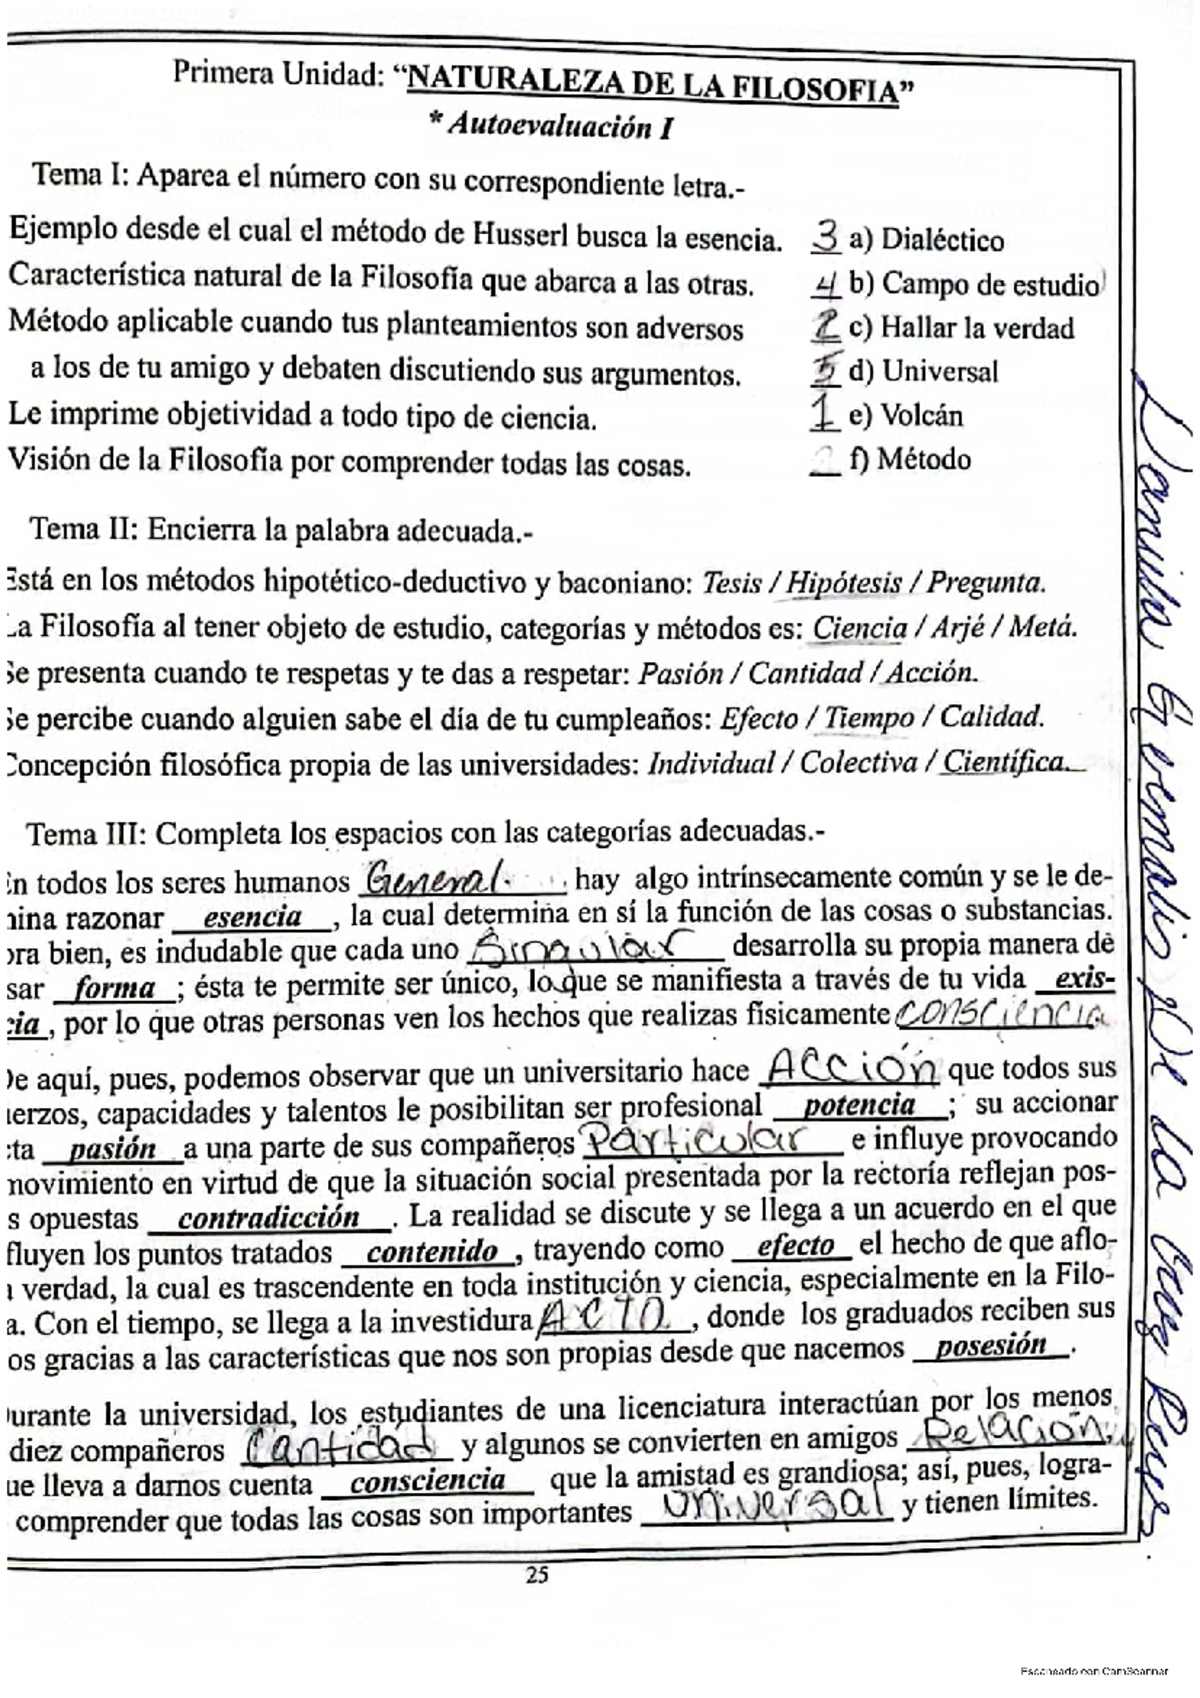 Primera Unidad: “NATURALEZA DE LA FILOSOFIA”
* Autoevaluación I
Tema I: Aparea el número con su correspondiente letra.-
Ejemplo desde el cual el método de Husserl busca la esencia. 3 a) Dialéctico
Característica natural de la Filosofía que abarca a las otras. 4 b) Campo de estudio
Método aplicable cuando tus planteamientos son adversos 2 c) Hallar la verdad
a los de tu amigo y debaten discutiendo sus argumentos. 5 d) Universal
Le imprime objetividad a todo tipo de ciencia. 1 e) Volcán
Visión de la Filosofía por comprender todas las cosas. 2 f) Método
Tema II: Encierra la palabra adecuada.-
Está en los métodos hipotético-deductivo y baconiano: Tesis / Hipótesis / Pregunta.
La Filosofía al tener objeto de estudio, categorías y métodos es: Ciencia / Arjé / Metá.
Se presenta cuando te respetas y te das a respetar: Pasión / Cantidad / Acción.
Se percibe cuando alguien sabe el día de tu cumpleaños: Efecto / Tiempo / Calidad.
Concepción filosófica propia de las universidades: Individual / Colectiva / Científica.
Tema III: Completa los espacios con las categorías adecuadas.-
En todos los seres humanos General hay algo intrínsecamente común y se le de-
mina razonar esencia, la cual determina en sí la función de las cosas o substancias.
ora bien, es indudable que cada uno Singular desarrolla su propia manera de
sar forma; ésta te permite ser único, lo que se manifiesta a través de tu vida exis-
cia, por lo que otras personas ven los hechos que realizas físicamente consciencia
De aquí, pues, podemos observar que un universitario hace Acción que todos sus
uerzos, capacidades y talentos le posibilitan ser profesional potencia; su accionar
cta pasión a una parte de sus compañeros Particular e influye provocando
movimiento en virtud de que la situación social presentada por la rectoría reflejan pos-
s opuestas contradicción. La realidad se discute y se llega a un acuerdo en el que
fluyen los puntos tratados contenido, trayendo como efecto el hecho de que aflo-
a verdad, la cual es trascendente en toda institución y ciencia, especialmente en la Filo-
a. Con el tiempo, se llega a la investidura ACTO, donde los graduados reciben sus
os gracias a las características que nos son propias desde que nacemos posesión.
Durante la universidad, los estudiantes de una licenciatura interactúan por los menos
diez compañeros Cantidad y algunos se convierten en amigos Relación y
ue lleva a darnos cuenta consciencia que la amistad es grandiosa; así, pues, logra-
comprender que todas las cosas son importantes Universal y tienen límites.
25
De la Cruz
Escaneado con CamScanner